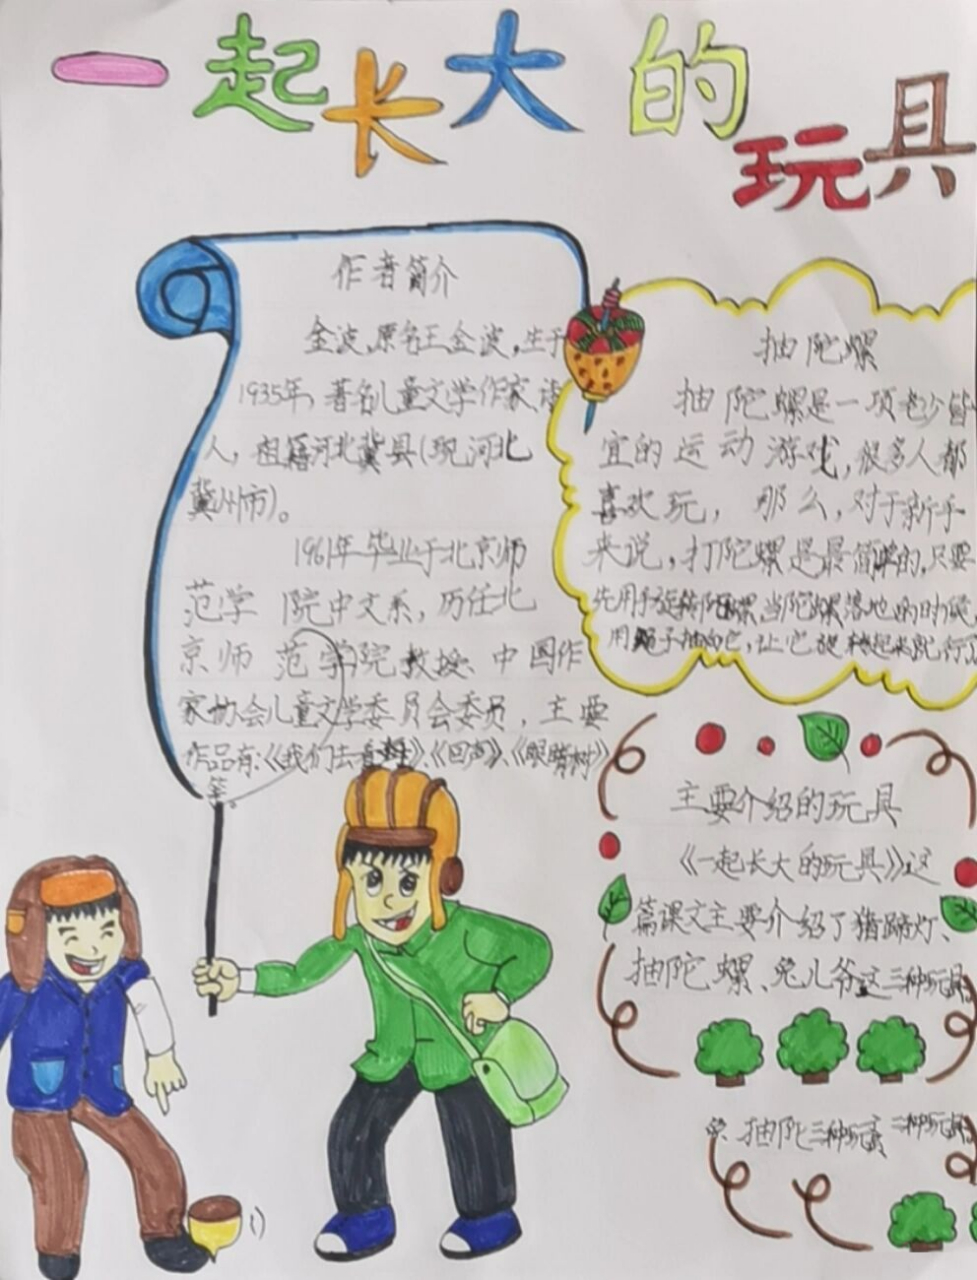 一起长大的玩具
作者简介
金波,原名王金波,生于
1935年,著名儿童文学作家诗
人,祖籍河北冀县(现河北
冀州市)。
1961年毕业于北京师
范学院中文系,历任北
京师范学院教授、中国作
家协会儿童文学委员会委员,主要
作品有:《我们去看》、《回声》、《眼睛树》
等。
抽陀螺
抽陀螺是一项老少皆
宜的运动游戏,很多人都
喜欢玩,那么,对于新手
来说,打陀螺是最简单的,只要
先用手旋转陀螺,当陀螺落地的时候
用绳子抽向它,让它旋转起来就行
主要介绍的玩具
《一起长大的玩具》这
篇课文主要介绍了猪蹄灯、
抽陀螺、兔儿爷这三种玩具
抽陀三种玩 三种玩具